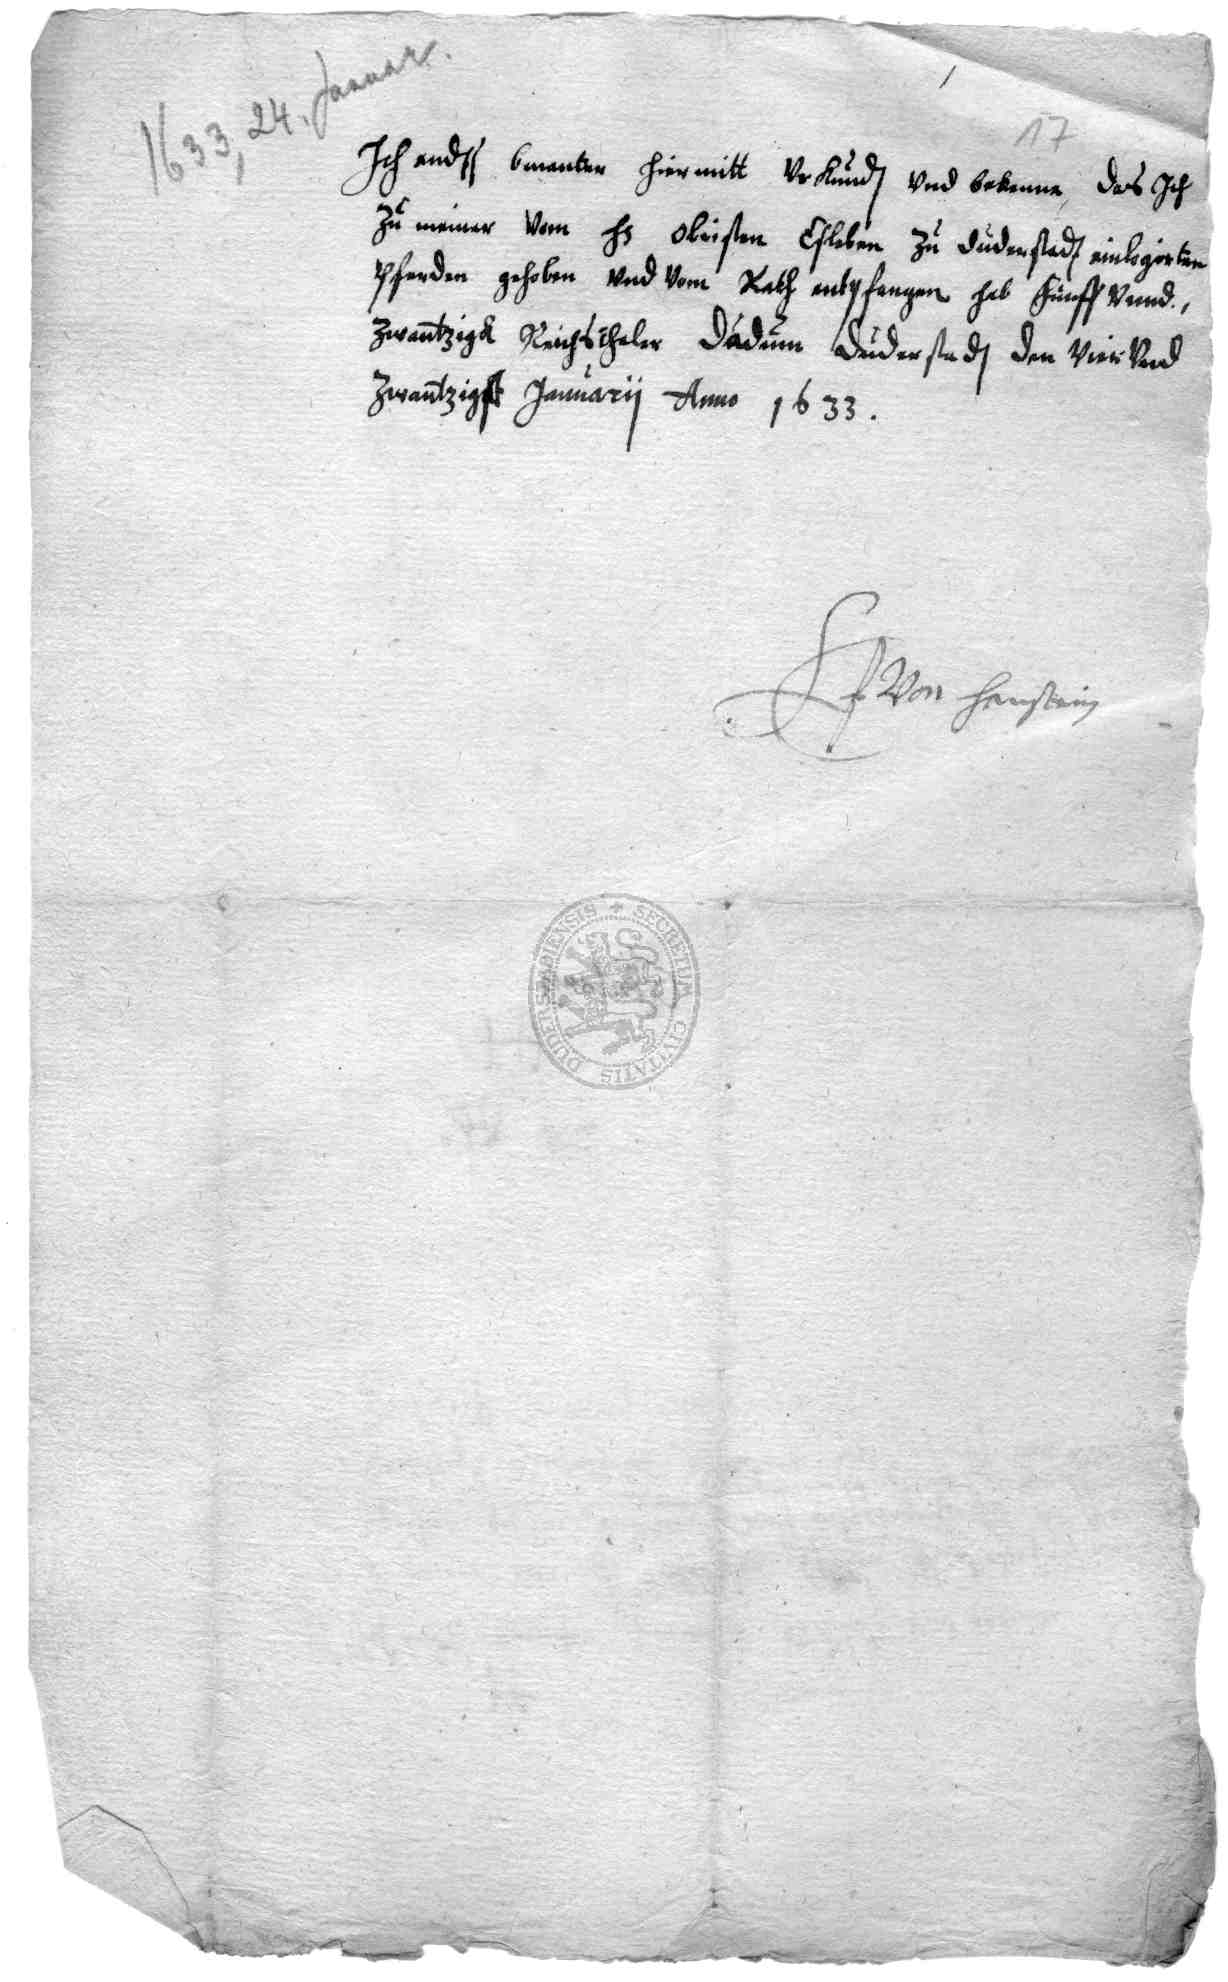 1633, 24. Januar.
17
Ich endß bnanter hiermitt Vrkund vnd bekenne, das Ich
Zu meiner vom hs obristen Esleben zu duderstad einlogirten
Pferden gehoben vnd vom Rath entpfangen hab Fünff vnnd
zwantzigk Reichsthaler Dadum duderstad den vier vnd
zwantzigst Januarij Anno 1633.
Von Hanstein
SECRETUM CIVITATIS DUDERSTADIENSIS